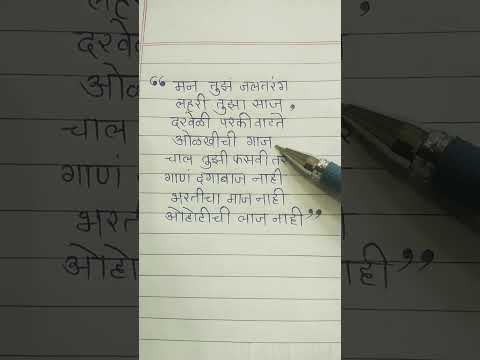 “ मन तुझं जलतरंग
लहरी तुझा साज,
दरवेळी परकी वाटते
ओळखीची गाज
चाल तुझी फसवी तरी
गाणं दगाबाज नाही
भरतीचा माज नाही
ओहोटीची लाज नाही ”